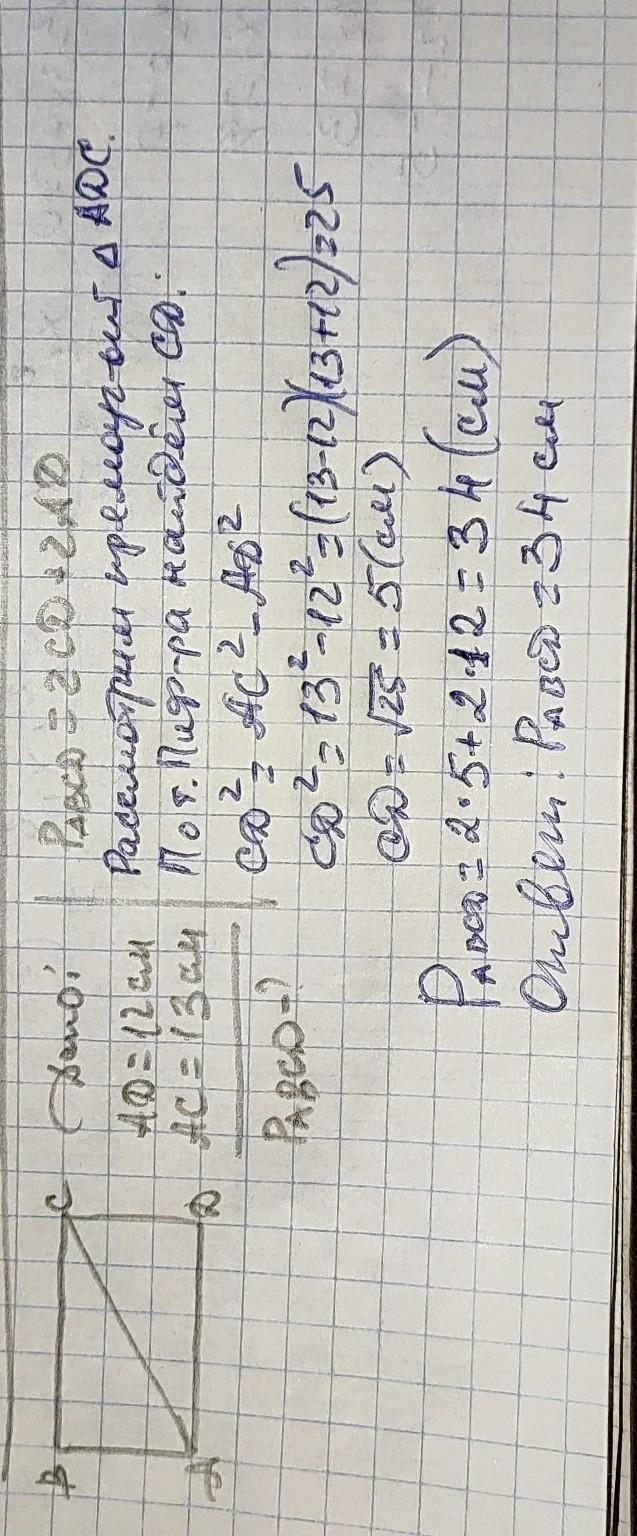 B C
A D
Дано:
AD = 12 см
AC = 13 см
PABCD - ?
PABCD = 2CD + 2AD
Рассмотрим прямоуг-ый Δ ADC.
По т. Пиф-ра найдём CD:
CD² = AC² - AD²
CD² = 13² - 12² = (13-12)(13+12) = 25
CD = √25 = 5 (см)
PABCD = 2·5 + 2·12 = 34 (см)
Ответ: PABCD = 34 см